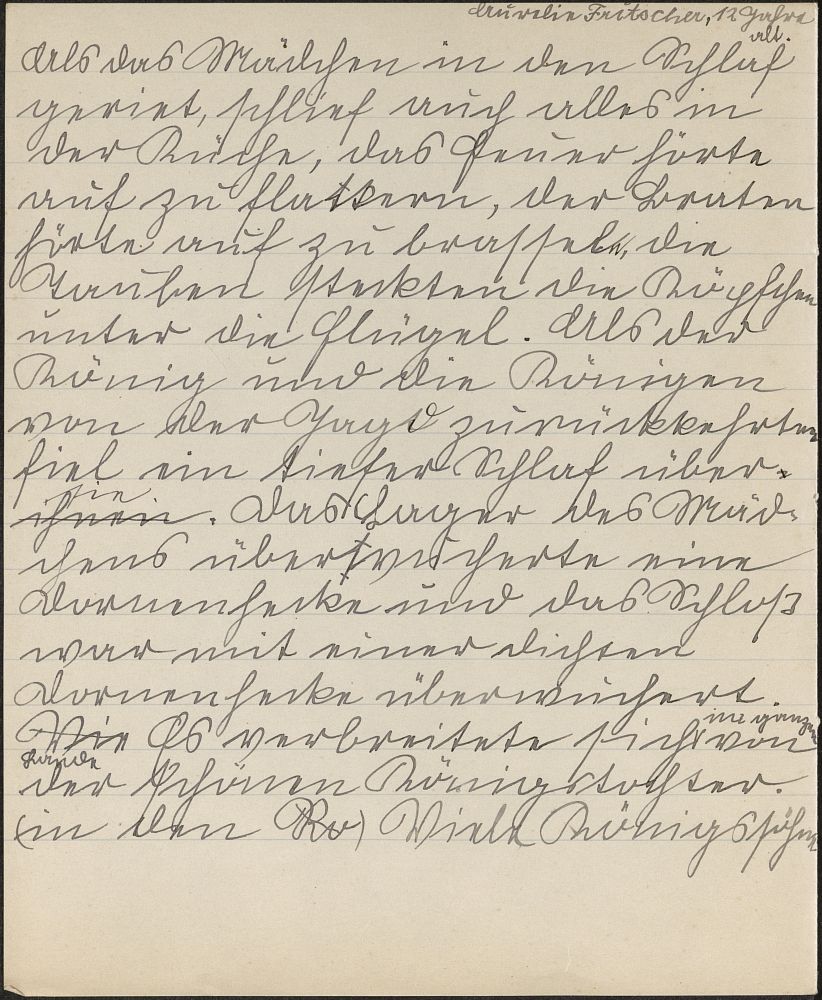 Aurelie Fritscher, 12 Jahre
alt.
Als das Mädchen in den Schlaf
geriet, schlief auch alles in
der Küche, das Feuer hörte
auf zu flackern, der Braten
hörte auf zu brasseln, die
Tauben steckten die Köpfchen
unter die Flügel. Als der
König und die Königen
von der Jagd zurückkehrten
fiel ein tiefer Schlaf über
sie
ihnen. Das Lager des Mäd-
chens überwucherte eine
Dornenhecke und das Schloß
war mit einer dichten
Dornenhecke überwuchert.
im ganzen
Wie Es verbreitete sich von
Lande
der schönen Königstochter.
(in den Ro) Viele Königssöhne